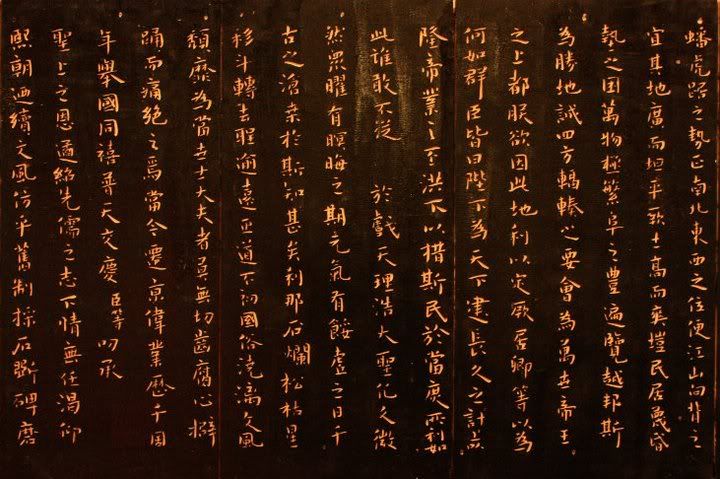 蟠虎踞之勢正南北東西之位便江山向背之
宜其地廣而坦平厥土高而爽塏民居蔑昏
墊之困萬物極繁阜之豐遍覽越邦斯
為勝地誠四方輻輳之要會為萬世帝王
之上都朕欲因此地利以定厥居卿等以為
何如群臣皆曰陛下為天下建長久之計上
隆帝業之丕洪下以措斯民於富庶所利如
此誰敢不從 於戲天理浩大聖化久微
然眾曜有暝晦之期元氣有餒虛之日千
古之滄桑於斯知甚矣刹那石爛松枯星
移斗轉去聖逾遠正道不初國俗澆漓文風
頹靡為當世士大夫者莫無切齒腐心擗
踊而痛絕之焉當今遷京偉業歷千周
年舉國同禧普天交慶 臣等 叨承
聖上之恩遹紹先儒之志下情無任渴仰
熙朝迺續文風仿乎舊制採石斲碑磨